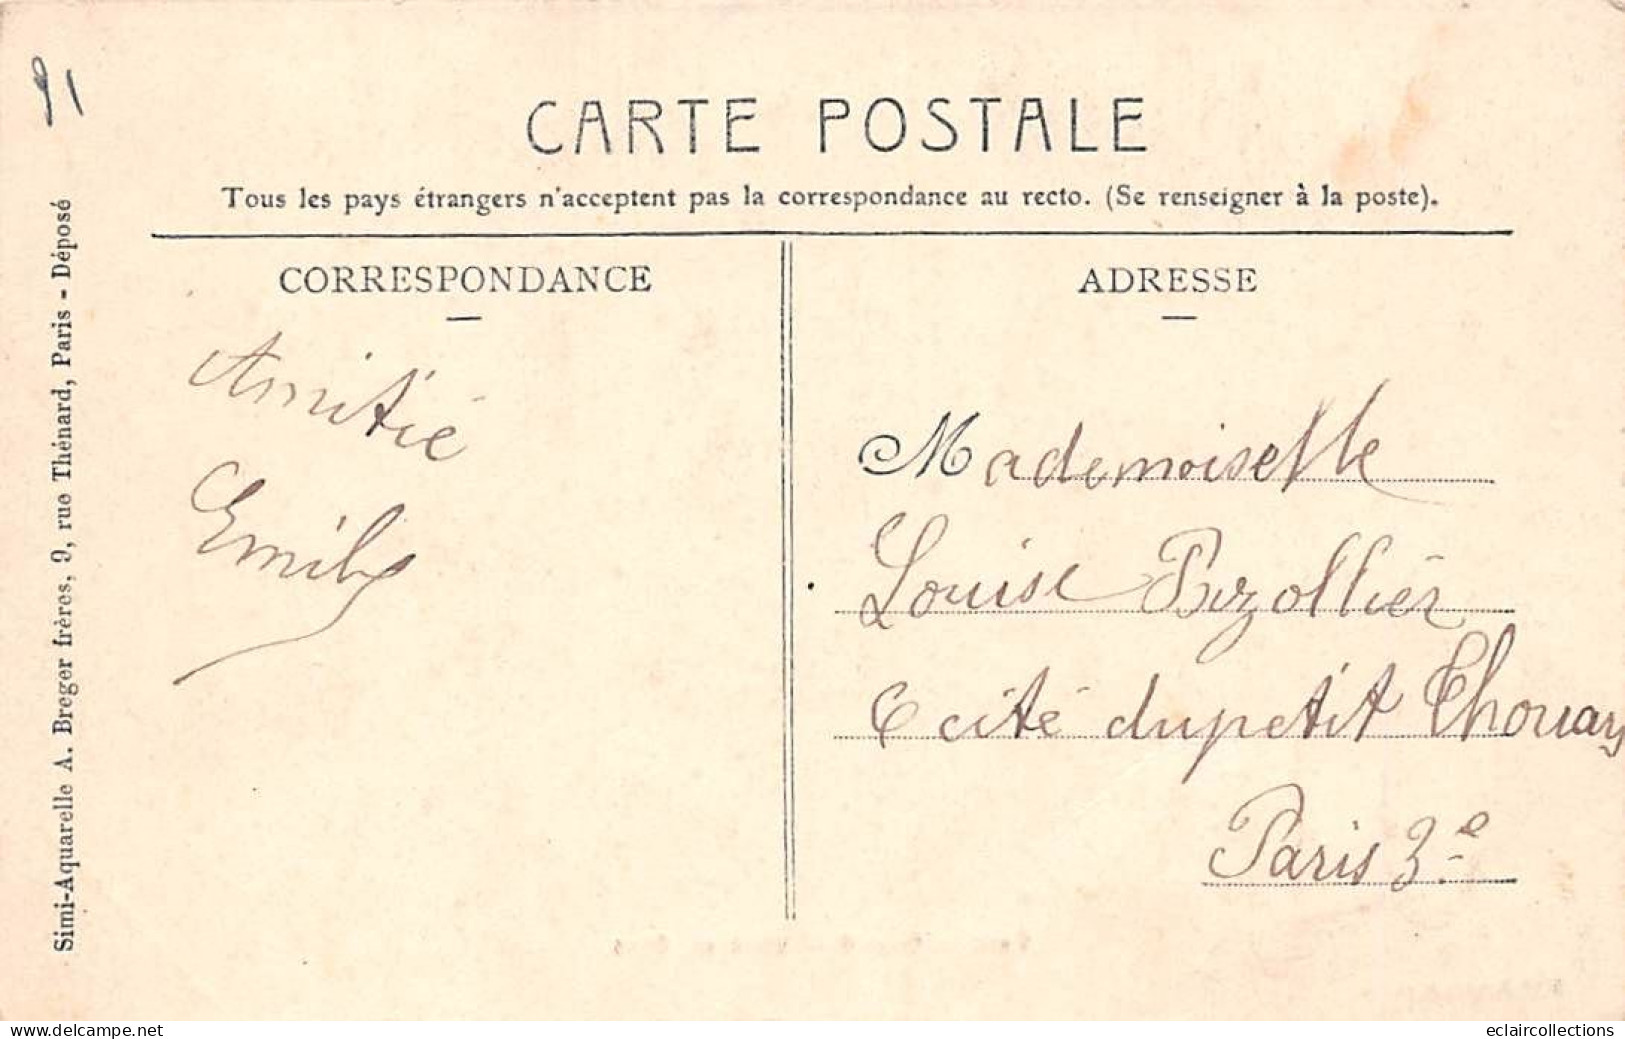 91
CARTE POSTALE
Tous les pays étrangers n'acceptent pas la correspondance au recto. (Se renseigner à la poste).
CORRESPONDANCE
Amitié
Emily
ADRESSE
Mademoiselle
Louise
6 cité du petit Thouars
Paris 3e
Simi-Aquarelle A. Breger frères, 9, rue Thénard, Paris - Déposé
Delcampe.net
eclaircollections